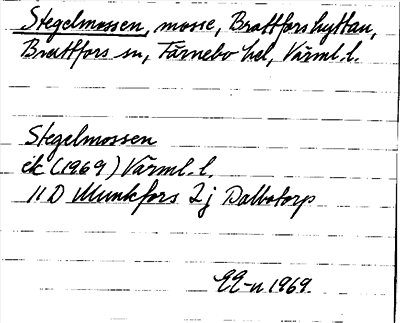 Stegelmossen, mosse, Brattforshyttan,
Brattfors sn, Färnebo hd, Värml. l.
Stegelmossen
ek (1969) Värml. l.
11 D Munkfors 2 j Dalbotorp
1969.